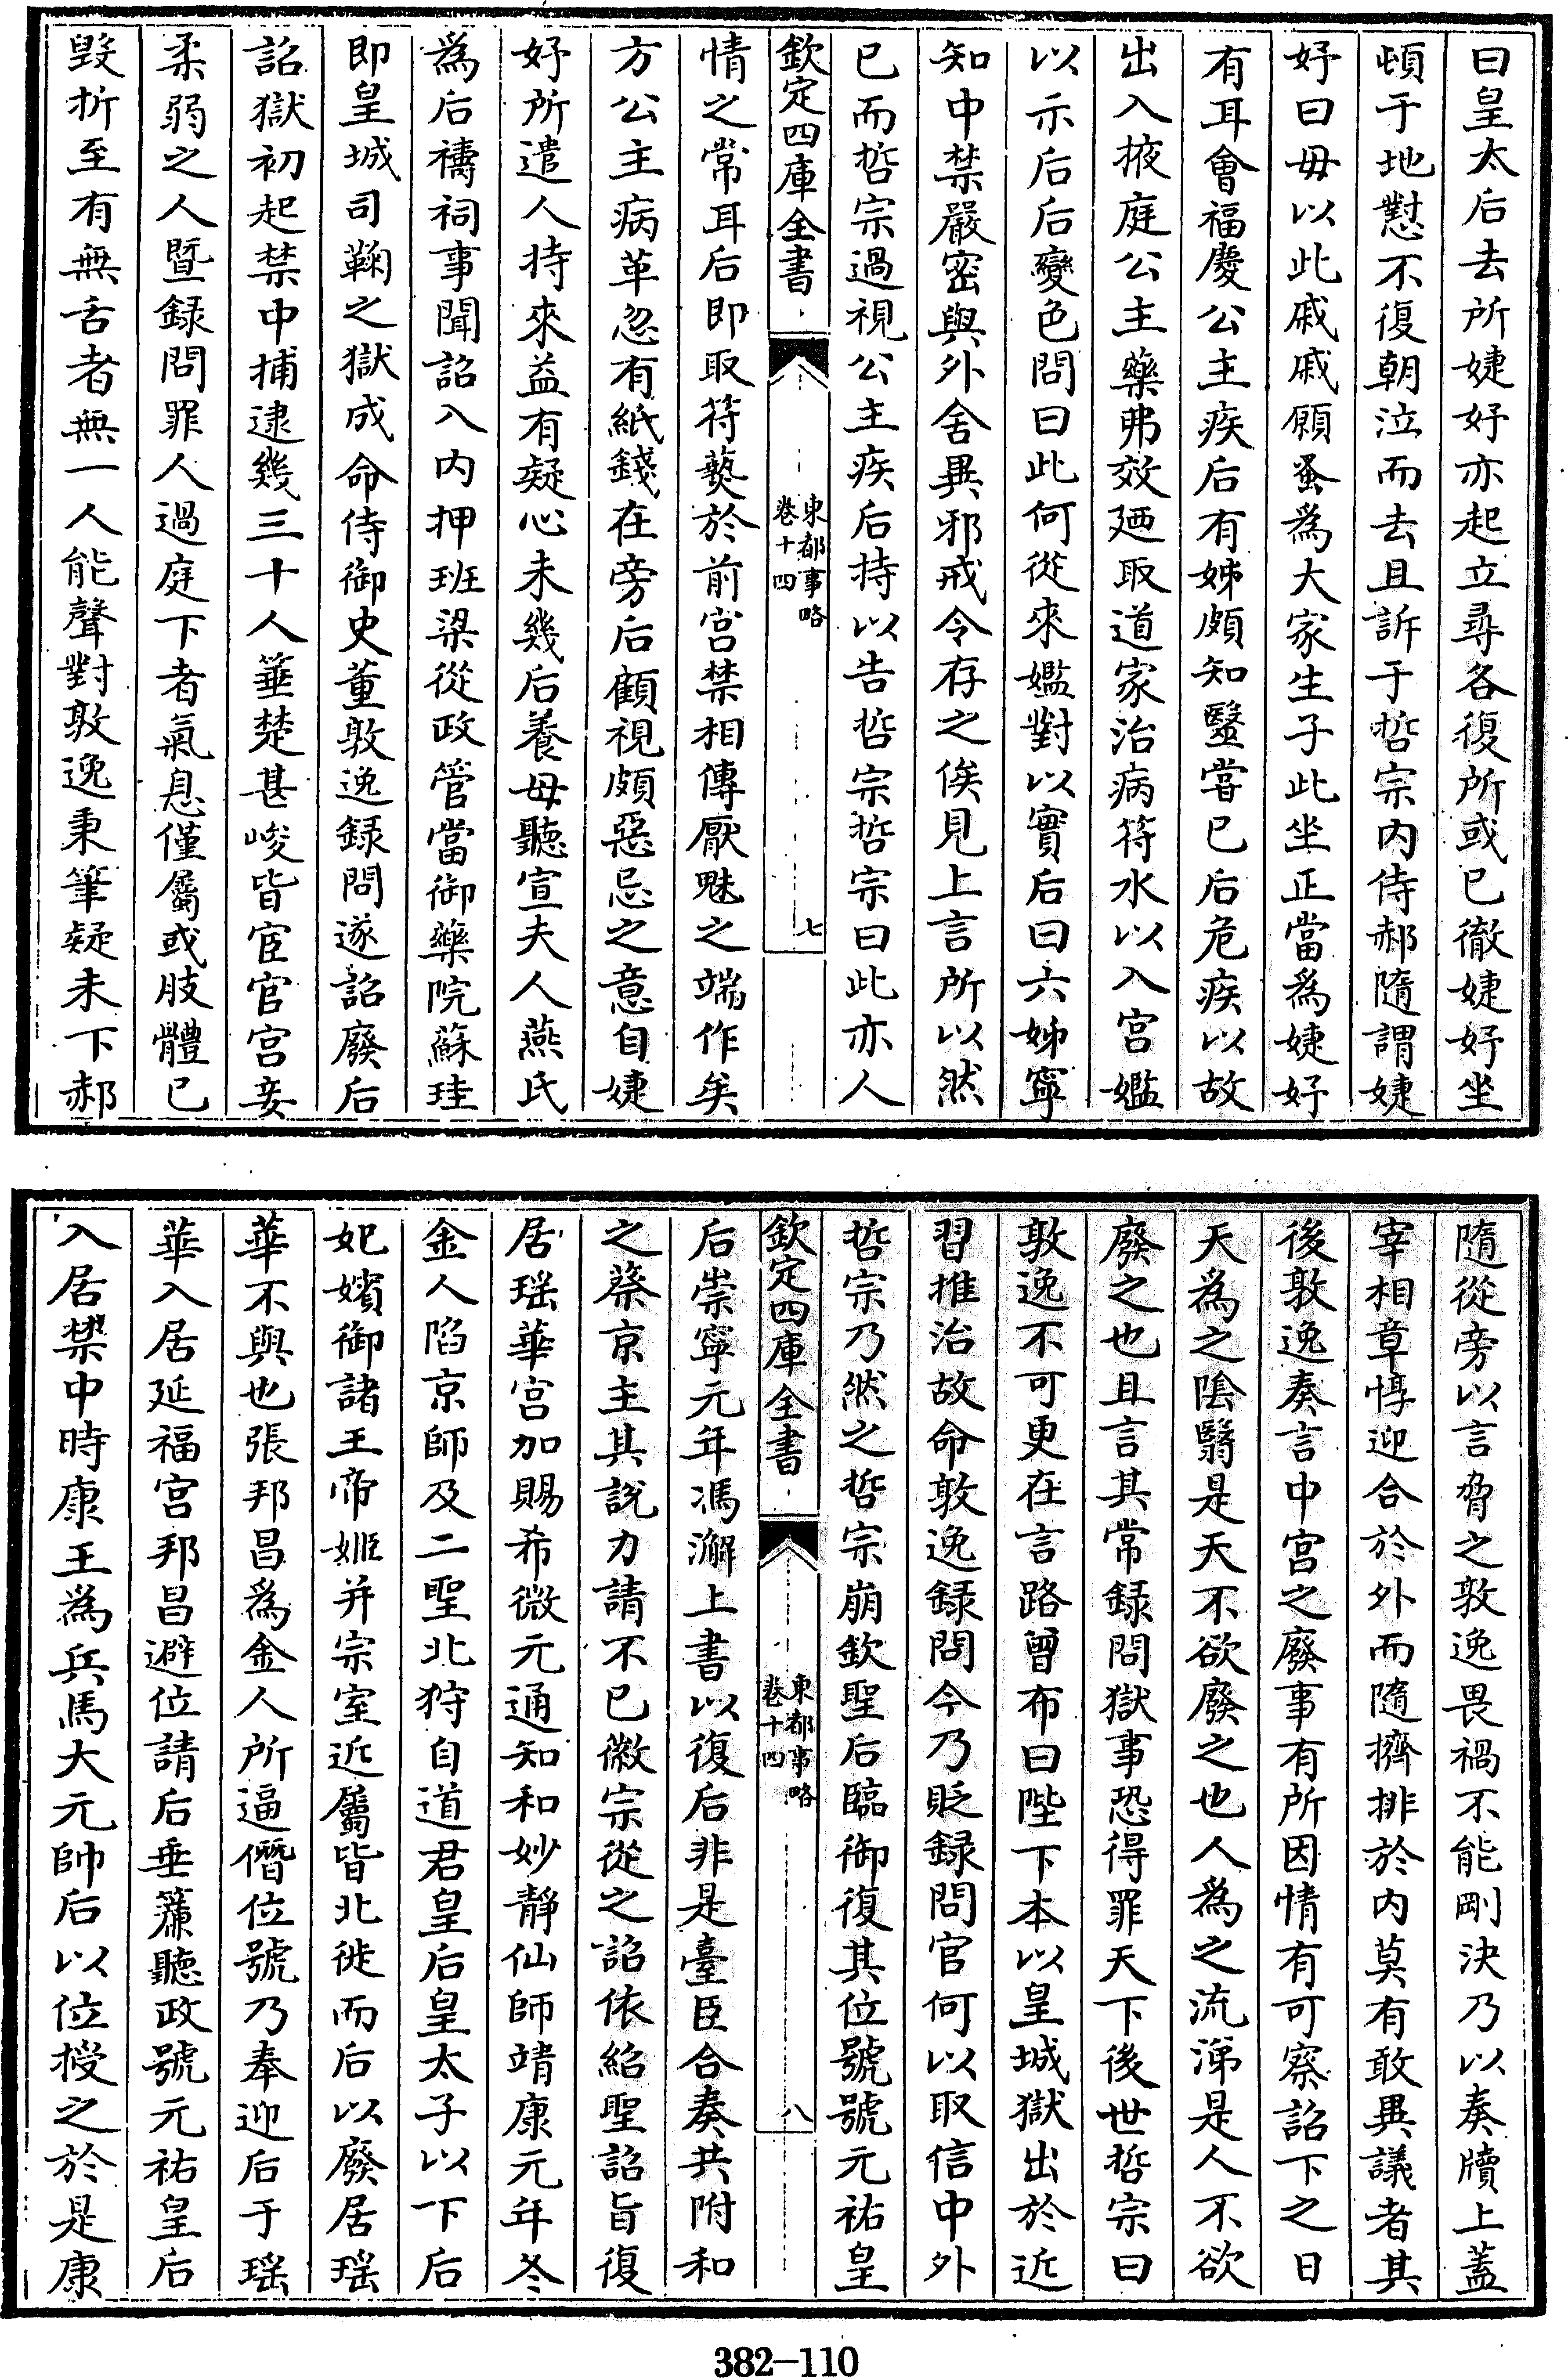 曰皇太后去所婕妤亦起立尋各復所或已徹婕妤坐
頓于地懟不復朝泣而去且訴于哲宗内侍郝隨謂婕
妤曰毋以此戚戚願蚤為大家生子此坐正當為婕妤
有耳會福慶公主疾后有姊頗知醫嘗已后危疾以故
出入掖庭公主藥弗效廼取道家治病符水以入宫㜮
以示后后變色問曰此何從來㜮對以實后曰六姊寧
知中禁嚴密與外舍異邪戒令存之俟見上言所以然
已而哲宗過視公主疾后持以告哲宗哲宗曰此亦人
欽定四庫全書
東都事略
卷十四
七
情之常耳后即取符爇於前宫禁相傳厭魅之端作矣
方公主病革忽有紙錢在旁后顧視頗惡忌之意自婕
妤所遣人持來益有疑心未幾后養母聽宣夫人燕氏
為后禱祠事聞詔入内押班梁從政管當御藥院蘇珪
即皇城司鞠之獄成命侍御史董敦逸録問遂詔廢后
詔獄初起禁中捕逮幾三十人箠楚甚峻皆宦官宫妾
柔弱之人暨録問罪人過庭下者氣息僅屬或肢體已
毀折至有無舌者無一人能聲對敦逸秉筆疑未下郝
隨從旁以言脅之敦逸畏禍不能剛決乃以奏牘上蓋
宰相章惇迎合於外而隨擠排於内莫有敢異議者其
後敦逸奏言中宫之廢事有所因情有可察詔下之日
天為之陰翳是天不欲廢之也人為之流涕是人不欲
廢之也且言其常録問獄事恐得罪天下後世哲宗曰
敦逸不可更在言路曾布曰陛下本以皇城獄出於近
習推治故命敦逸録問今乃貶録問官何以取信中外
哲宗乃然之哲宗崩欽聖后臨御復其位號號元祐皇
欽定四庫全書
東都事略
卷十四
八
后崇寧元年馮澥上書以復后非是臺臣合奏共附和
之蔡京主其説力請不已徽宗從之詔依紹聖詔旨復
居瑶華宫加賜希微元通知和妙靜仙師靖康元年冬
金人陷京師及二聖北狩自道君皇后皇太子以下后
妃嬪御諸王帝姬并宗室近屬皆北徙而后以廢居瑶
華不與也張邦昌為金人所逼僭位號乃奉迎后于瑶
華入居延福宫邦昌避位請后垂簾聽政號元祐皇后
入居禁中時康王為兵馬大元帥后以位授之於是康
382-110